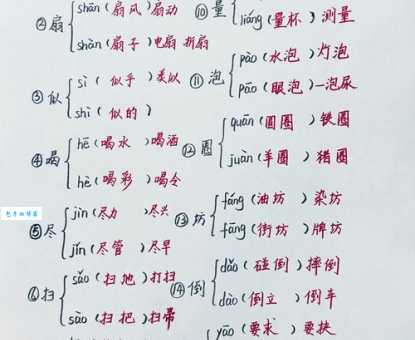 ②扇 shān(扇风)扇动
shàn(扇子)电扇 折扇
③似 sì(似乎)类似
shì(似的)
④喝 hē(喝水)喝酒
hè(喝彩)喝令
包子的播客
⑤尽 jìn(尽力)尽兴
jǐn(尽管)尽早
⑥扫 sǎo(扫地)打扫
sào(扫把)扫帚
⑩量
liáng(量杯)测量
⑪泡 pào(水泡)灯泡
pāo(眼泡)一泡尿
⑫圈 quān(圆圈)铁圈
juàn(羊圈)猪圈
⑬坊 fáng(油坊)染坊
fāng(街坊)牌坊
⑭倒 dǎo(碰倒)摔倒
dào(倒立)倒车
yāo(要求)要挟